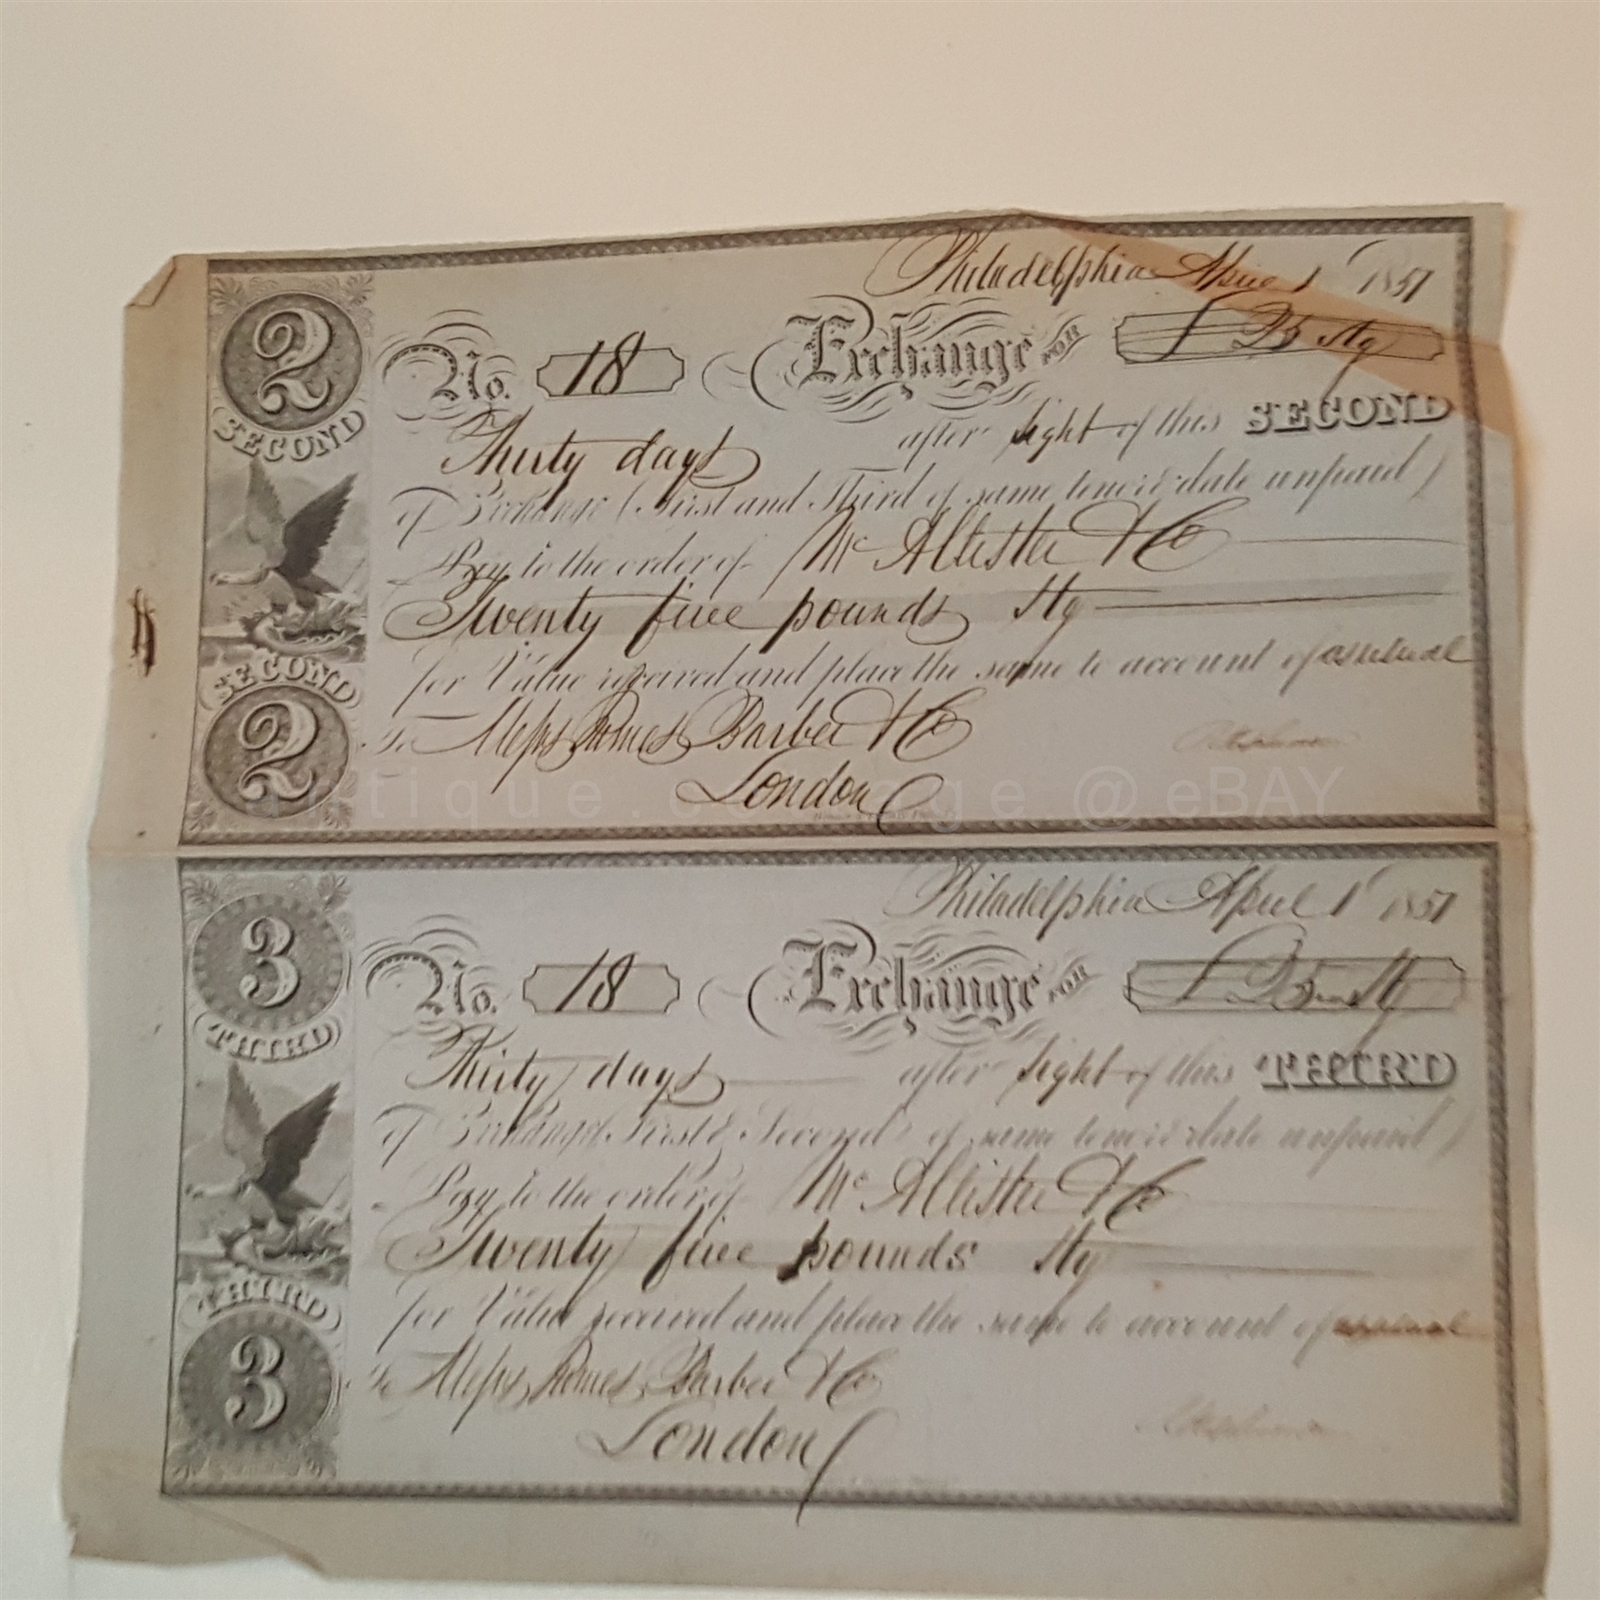 Philadelphia April 1 1851
2
SECOND
No. 18 Exchange FOR £ 25 Stg
Thirty days after sight of this SECOND
of Exchange (First and Third of same tenor & date unpaid)
Pay to the order of McAllister & Co
Twenty five pounds Stg
for Value received and place the same to account of
SECOND
2
To Messrs Barber & Co
London
antique. @ eBAY
Philadelphia April 1 1851
3
THIRD
No. 18 Exchange FOR £ 25 Stg
Thirty days after sight of this THIRD
of Exchange (First & Second of same tenor & date unpaid)
Pay to the order of McAllister & Co
Twenty five pounds Stg
for Value received and place the same to account of
THIRD
3
To Messrs Barber & Co
London